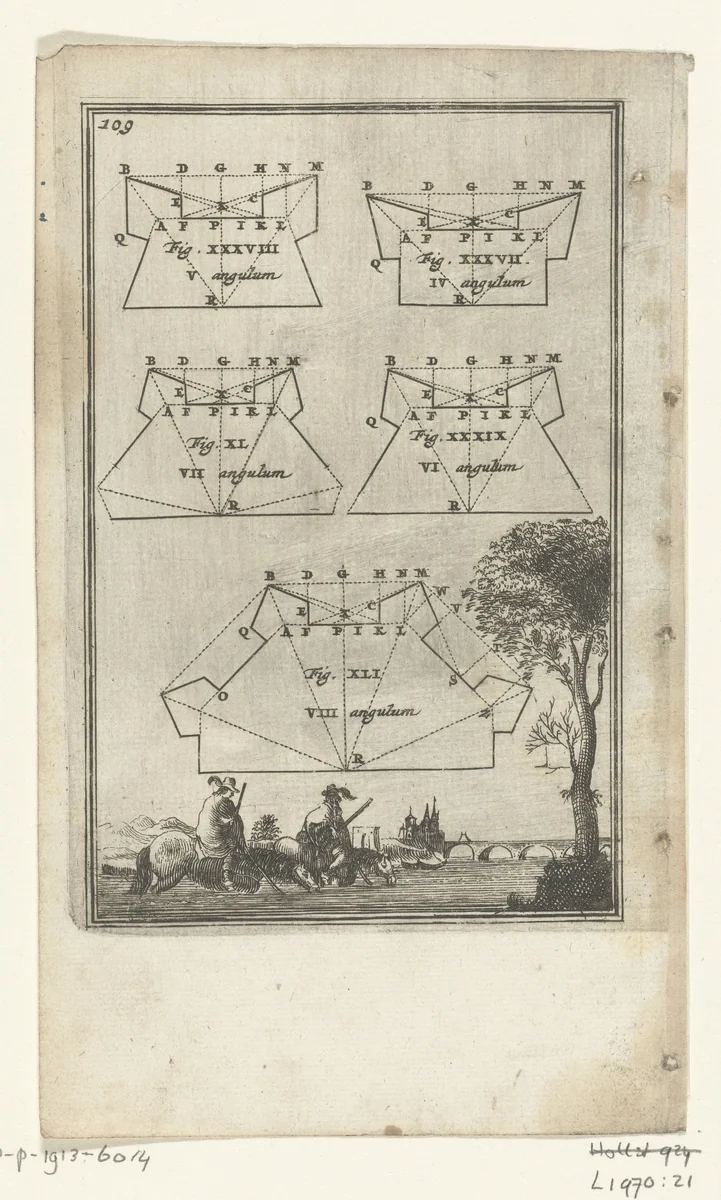 109
B D G H N M
E X C
A F P I K L
Q
Fig. XXXVIII
V angulum
R
B D G H N M
E X C
A F P I K L
Q
Fig. XXXVII.
IV angulum
R
B D G H N M
E X C
A F P I K L
Fig. XL
VII angulum
R
B D G H N M
E X C
Q A F P I K L
Fig. XXXIX
VI angulum
R
B D G H N M
W
E X C
V
Q A F P I K L
T
Fig. XLI
S
O
VIII angulum
Z
R
-P-1913-6014
Hollst 924
L1970:21